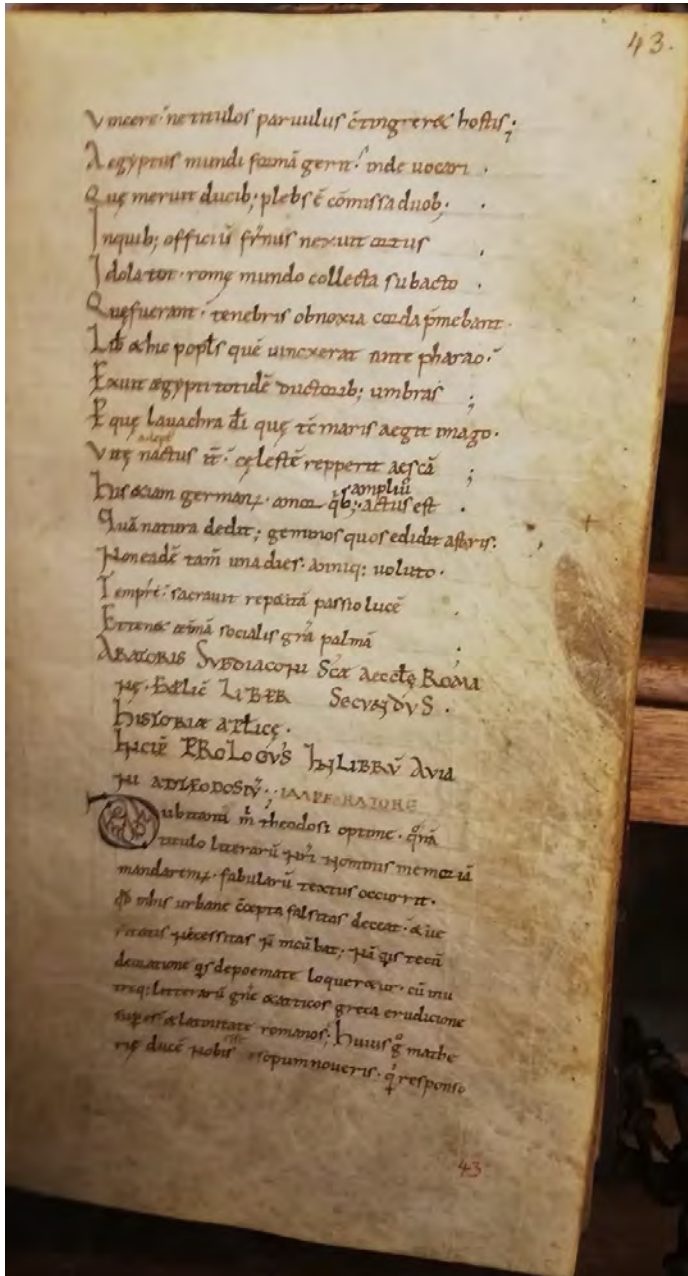 43.
Vincere · ne titulos paruulus c̄tingeret hostis ;
Aegyptus mundi formā gerit · inde uocari ·
Quę meruit ducib; plebs ē cōmissa duob; ·
Inquib; officiū fr̄nus nexuit ortus
Idola tot · romę mundo collecta subacto ·
Quę fuerant · tenebris obnoxia corda p̄mebant ·
&hic quē uincxerat ante pharao ·
Exuit ęgypti totidē ductorib; umbras ;
que lauachra dī quę maris aegit imago ·
Vitę nactus · cęlestē repperit aescā ;
ampliū
His &iam · amor actus est ·
Quā natura dedit ; geminos quos edidit astris :
Non eadē tam̄ una dies · anniq; uoluto ·
Tempr̄e · sacrauit passio lucē
socialis gr̄a palmā
ARATORIS SVBDIACONI SC̄Æ AECCLĘ ROMA
NĘ · LIBER SECVNDVS ·
HISTORIAE APLICĘ ·
INCIP̄ PROLOGVS IN LIBRV̄ AVIA
NI AD TEODOSIV̄ · IMPERATORE
Dubitanti m̄ theodosi optime · qnā
titulo literarū nr̄i nominis memoriā
mandarem · fabularū textus occurrit ·
qd inhis urbane c̄cepta falsitas deceat · & ue
ritatis necessitas n̄ incūbat ; Nā qis tecū
de oratione qs depoemate loqueretur · cū inu
troq; litterarū &atticos greca erudicione
supes · &latinitate romanos ; Huius g mathe
rię ducē nobis esopum noueris · qi responso
43